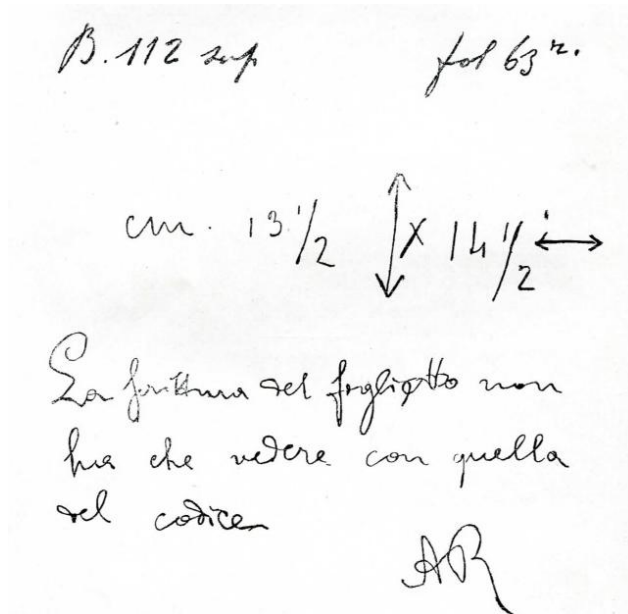 B. 112 sup fol 63 r.
cm. 13 1/2 ↕ X 14 1/2 ↔
La scrittura del foglietto non
ha che vedere con quella
del codice
AR